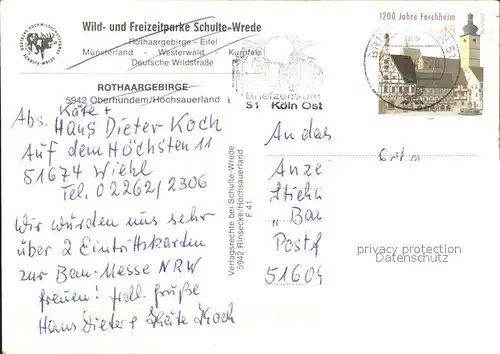 Wild- und Freizeitparke Schulte-Wrede
Rothaargebirge - Eifel
Münsterland - Westerwald - Kurpfalz
Deutsche Wildstraße
ROTHAARGEBIRGE
5942 Oberhundem/Hochsauerland
1200 Jahre Forchheim
Briefzentrum
51 Köln Ost
Käte +
Abs. Hans Dieter Koch
Auf dem Höchsten 11
51674 Wiehl
Tel. 02262/2306
Wir würden uns sehr
über 2 Eintrittskarten
zur Bau-Messe NRW
freuen! frdl. Grüße
Hans Dieter + Käte Koch
Verlagsrechte bei Schulte-Wrede
5942 Rinsecke/Hochsauerland
F 41
An das
Anze
Stichw
„Bau
Postf
51604
privacy protection
Datenschutz